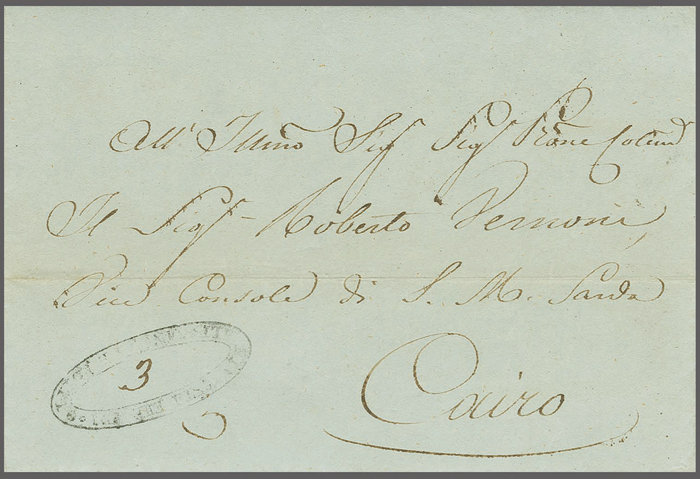 All' Illmo Sigr Sigr Prone Colmo
Il Sigr Roberto Vernoni,
Vice Console di S. M. Sarda
3
Cairo